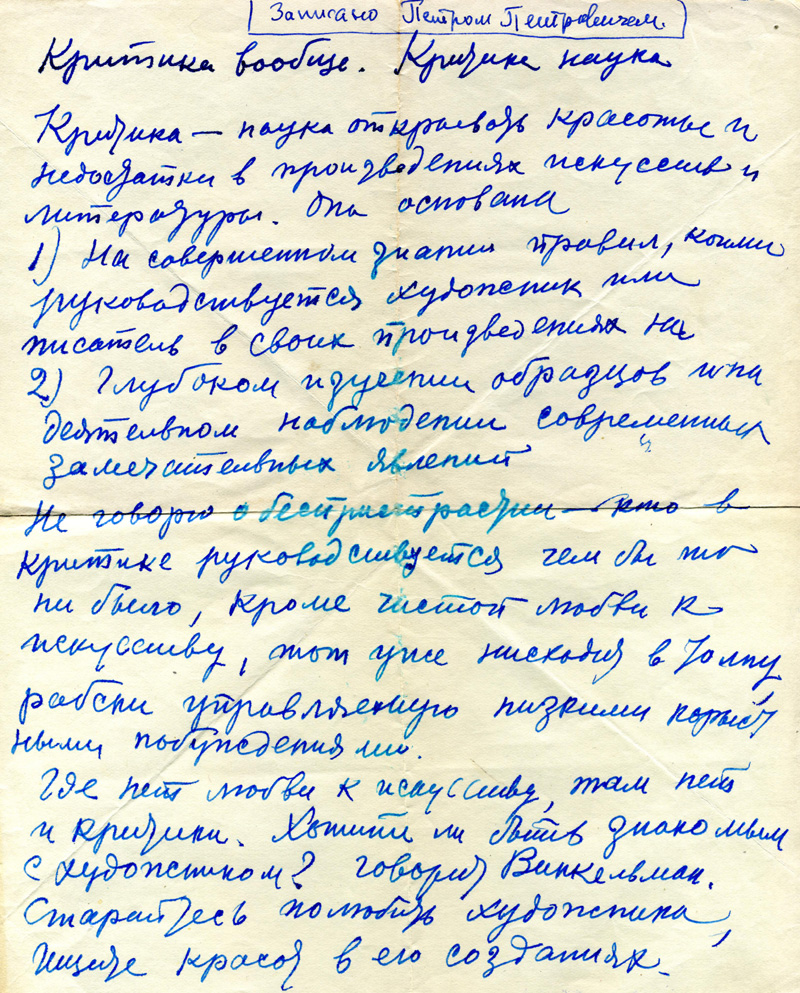 Записано Петром Петровичем.
Критика вообще. Критика наука
Критика — наука открывать красоты и
недостатки в произведениях искусств и
литературы. Она основана
1) На совершенном знании правил, коими
руководствуется художник или
писатель в своих произведениях на
2) Глубоком изучении образцов и на
деятельном наблюдении современных
замечательных явлений
Не говорю о беспристрастии — кто в
критике руководствуется чем бы то
ни было, кроме чистой любви к
искусству, тот уже нисходит в толпу,
рабски управляемую низкими корыст
ными побуждениями.
Где нет любви к искусству, там нет
и критики. Хотите ли быть знакомым
с художником? говорит Винкельман.
Старайтесь полюбить художника,
Ищите красот в его созданиях.